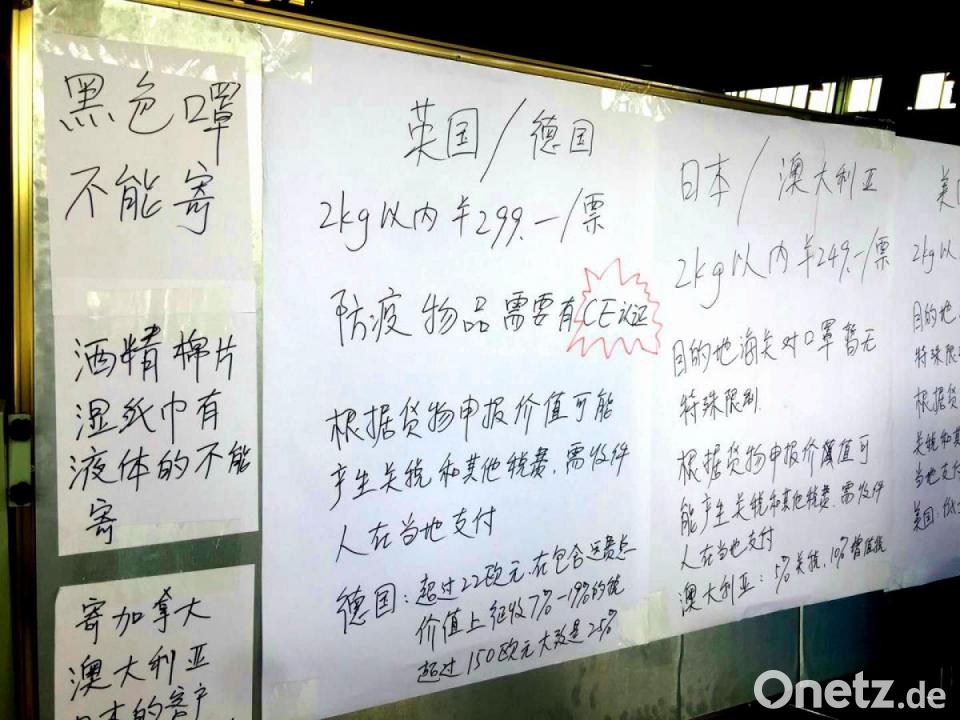 黑色口罩
不能寄
酒精棉片
湿纸巾有
液体的不能
寄
寄加拿大
澳大利亚
日本的客户
英国/德国
2kg以内¥299.—/票
防疫物品需要有CE认证
根据货物申报价值可能
产生关税和其他税费,需收件
人在当地支付
德国:超过22欧元,在包含运费总
价值上征收7%—19%的税
超过150欧元大致是25%
日本/澳大利亚
2kg以内¥249.—/票
目的地海关对口罩暂无
特殊限制.
根据货物申报价值可
能产生关税和其他税费,需收件
人在当地支付
澳大利亚:5%关税,10%增值税
美
2kg以
目的地
特殊限
根据货
关税和其
当地支付
美国:
Onetz.de